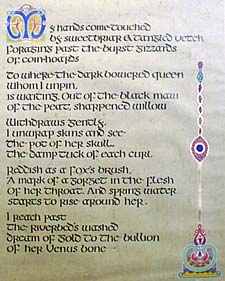 My hands come touched
by sweetbriar & tangled vetch
Foraging past the burst gizzards
of coin-hoards
To where the dark bowered queen
whom I unpin,
is waiting. Out of the black maw
of the peat, sharpened willow
Withdraws gently.
I unwrap skins and see
the pot of her skull.
The damp tuck of each curl
Reddish as a fox's brush,
A mark of a gorget in the flesh
of her throat. And spring water
starts to rise around her.
I reach past
The riverbed's washed
dream of gold to the bullion
of her Venus bone